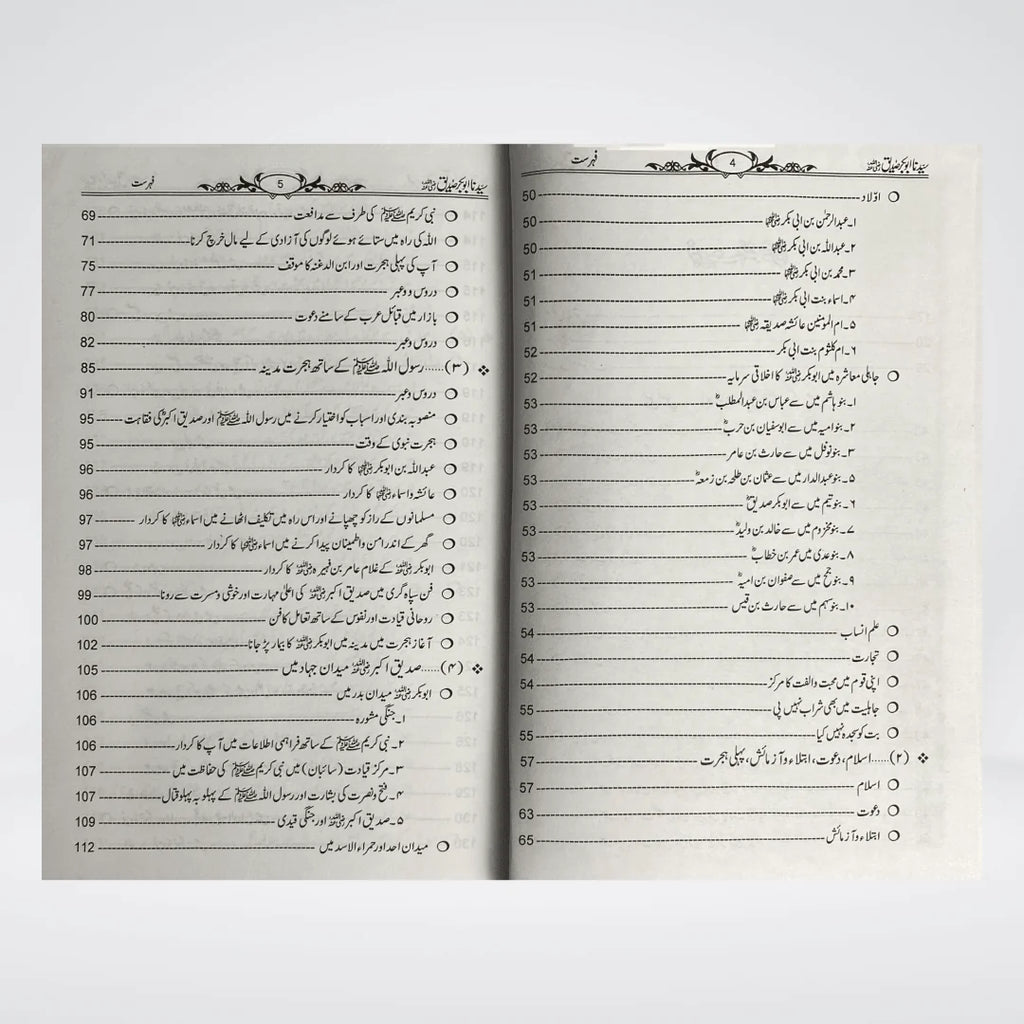 سیدنا ابوبکر صدیق رضی اللہ عنہ 4 فہرست
○ اوّلاد 50
۱۔ عبدالرحمٰن بن ابی بکر رضی اللہ عنہما 50
۲۔ عبداللہ بن ابی بکر رضی اللہ عنہما 50
۳۔ محمد بن ابی بکر رضی اللہ عنہما 51
۴۔ اسماء بنت ابی بکر رضی اللہ عنہما 51
۵۔ ام المومنین عائشہ صدیقہ رضی اللہ عنہا 51
۶۔ ام کلثوم بنت ابی بکر 52
○ جاہلی معاشرہ میں ابوبکر رضی اللہ عنہ کا اخلاقی سرمایہ 52
۱۔ بنو ہاشم میں سے عباس بن عبدالمطلبؓ 53
۲۔ بنو امیہ میں سے ابوسفیان بن حربؓ 53
۳۔ بنو نوفل میں سے حارث بن عامر 53
۵۔ بنو عبدالدار میں سے عثمان بن طلحہ بن زمعہؓ 53
۶۔ بنو تیم میں سے ابوبکر صدیقؓ 53
۷۔ بنو مخزوم میں سے خالد بن ولیدؓ 53
۸۔ بنو عدی میں سے عمر بن خطابؓ 53
۹۔ بنو جمح میں سے صفوان بن امیہؓ 53
۱۰۔ بنو سہم میں سے حارث بن قیس 53
○ علم انساب 54
○ تجارت 54
○ اپنی قوم میں محبت والفت کا مرکز 54
○ جاہلیت میں بھی شراب نہیں پی 55
○ بت کو سجدہ نہیں کیا 55
❖ (۲)......اسلام، دعوت، ابتلاء و آزمائش، پہلی ہجرت 57
○ اسلام 57
○ دعوت 63
○ ابتلاء و آزمائش 65
سیدنا ابوبکر صدیق رضی اللہ عنہ 5 فہرست
○ نبی کریم ﷺ کی طرف سے مدافعت 69
○ اللہ کی راہ میں ستائے ہوئے لوگوں کی آزادی کے لیے مال خرچ کرنا 71
○ آپ کی پہلی ہجرت اور ابن الدغنہ کا موقف 75
○ دروس و عبر 77
○ بازار میں قبائل عرب کے سامنے دعوت 80
○ دروس و عبر 82
❖ (۳)......رسول اللہ ﷺ کے ساتھ ہجرت مدینہ 85
○ دروس و عبر 91
○ منصوبہ بندی اور اسباب کو اختیار کرنے میں رسول اللہ ﷺ اور صدیق اکبرؓ کی فقاہت 95
○ ہجرت نبوی کے وقت 95
○ عبداللہ بن ابوبکر رضی اللہ عنہما کا کردار 96
○ عائشہ و اسماء رضی اللہ عنہما کا کردار 96
○ مسلمانوں کے راز کو چھپانے اور اس راہ میں تکلیف اٹھانے میں اسماء رضی اللہ عنہا کا کردار 97
○ گھر کے اندر امن و اطمینان پیدا کرنے میں اسماء رضی اللہ عنہا کا کردار 97
○ ابوبکر رضی اللہ عنہ کے غلام عامر بن فہیرہ رضی اللہ عنہ کا کردار 98
○ فن سپاہ گری میں صدیق اکبر رضی اللہ عنہ کی اعلیٰ مہارت اور خوشی و مسرت سے رونا 99
○ روحانی قیادت اور نفوس کے ساتھ تعامل کا فن 100
○ آغاز ہجرت میں مدینہ میں ابوبکر رضی اللہ عنہ کا بیمار پڑ جانا 102
❖ (۴)......صدیق اکبر رضی اللہ عنہ میدان جہاد میں 105
○ ابوبکر رضی اللہ عنہ میدان بدر میں 106
۱۔ جنگی مشورہ 106
۲۔ نبی کریم ﷺ کے ساتھ فراہمی اطلاعات میں آپ کا کردار 106
۳۔ مرکز قیادت (سائبان) میں نبی کریم ﷺ کی حفاظت میں 107
۴۔ فتح و نصرت کی بشارت اور رسول اللہ ﷺ کے پہلو بہ پہلو قتال 107
۵۔ صدیق اکبر رضی اللہ عنہ اور جنگی قیدی 109
○ میدان احد اور حمراء الاسد میں 112